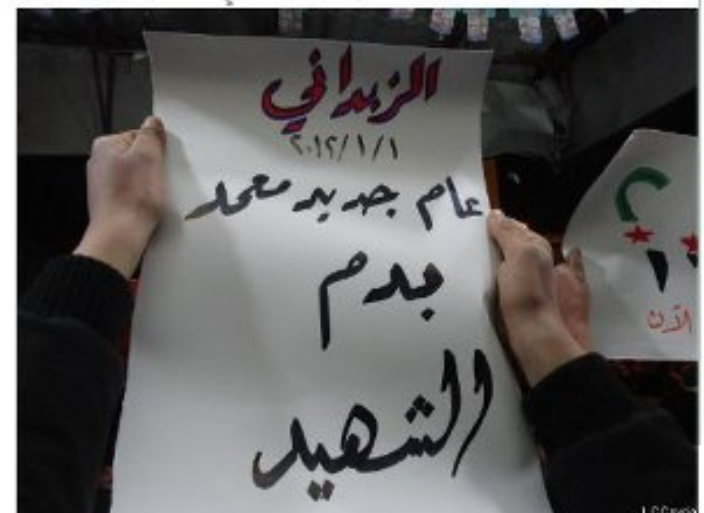 الزبداني
٢٠١٢/١/١
عام جديد معمد
بدم
الشهيد
الآن